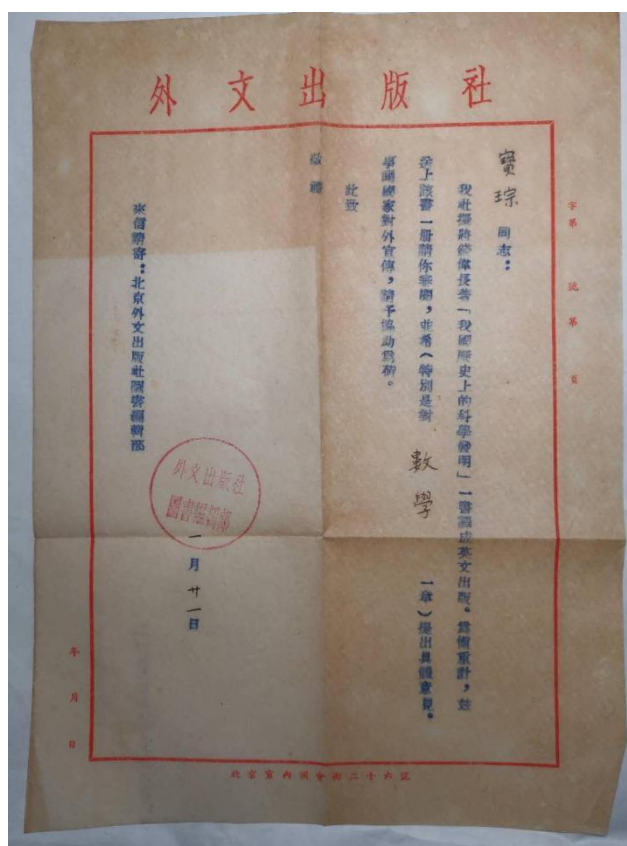 外文出版社
字第 號第 頁
寶琮 同志：
我社擬將錢偉長著「我國歷史上的科學發明」一書譯成英文出版。爲愼重計，玆
送上該書一册請你審閱，並希（特別是對 數學 一章）提出具體意見。
事關國家對外宣傳，請予協助爲荷。
此致
敬禮
來信請寄：北京外文出版社圖書編輯部
外文出版社
圖書編輯部
一月廿一日
年 月 日
北京宣內國會街二十六號